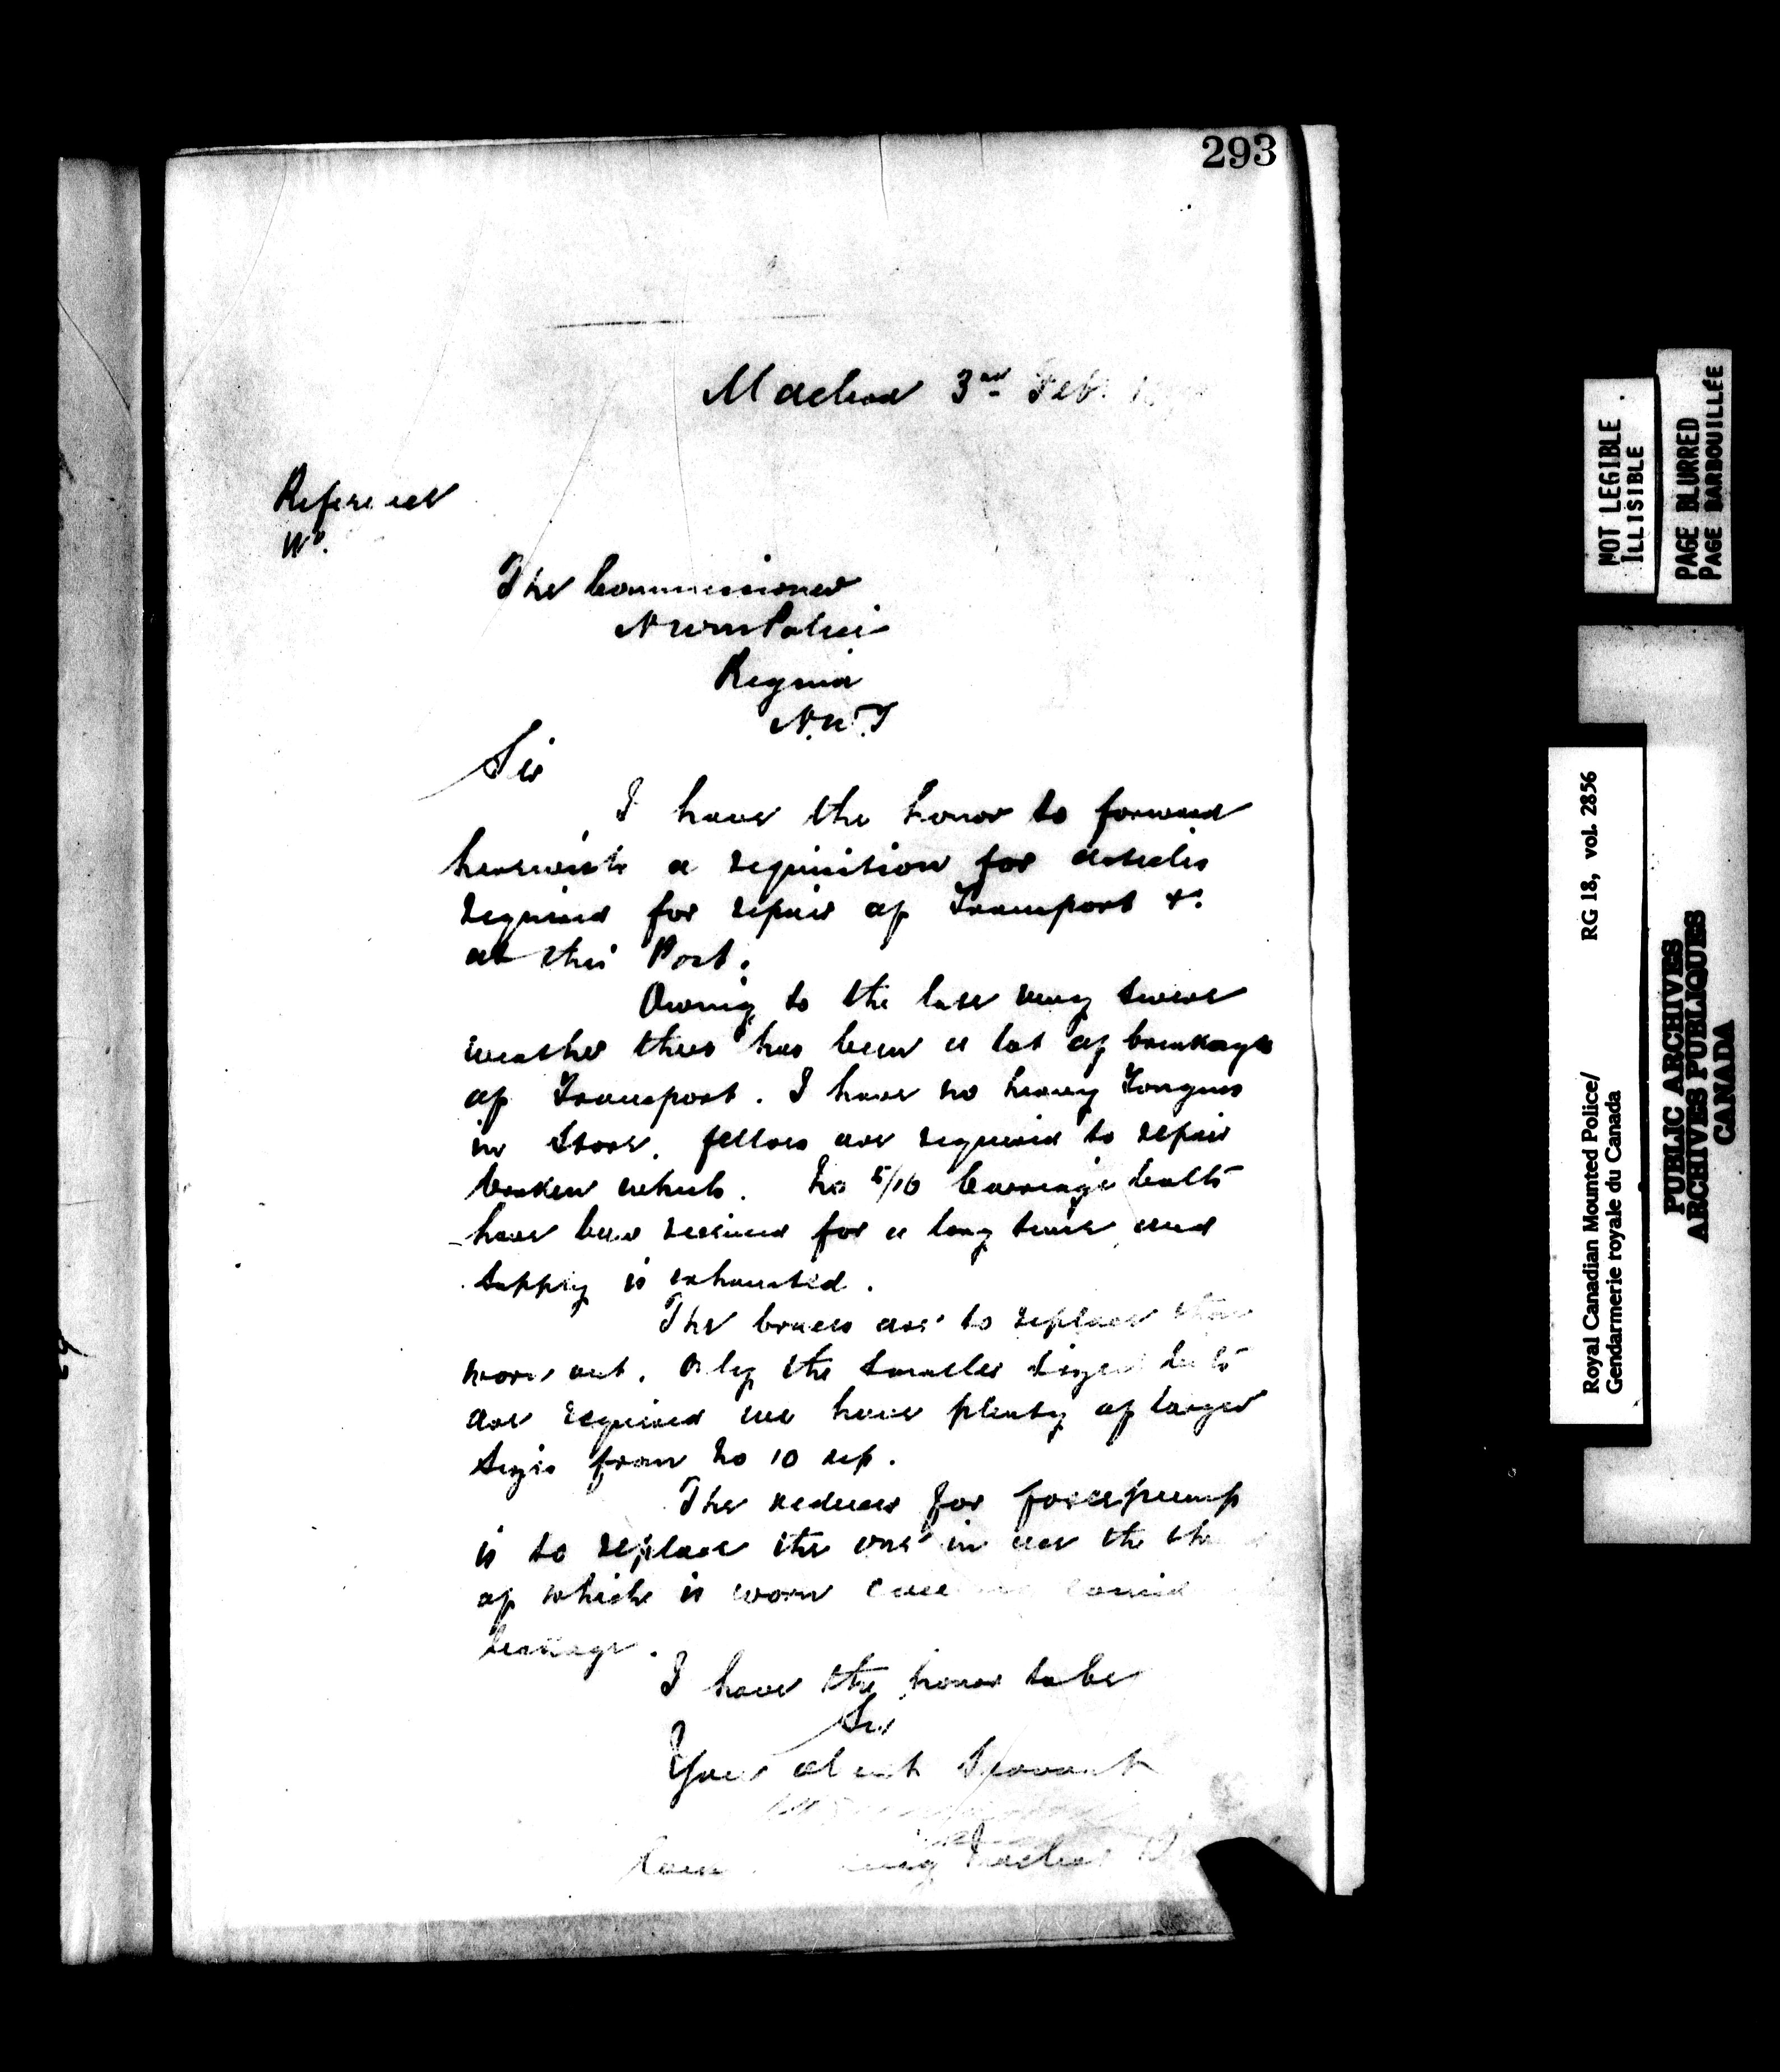 293
Macleod 3rd Feb.
Reference
No.
The Commissioner
N W M Police
Regina
N.W.T
Sir
I have the honor to forward
herewith a requisition for articles
required for repair of Transport &c
at this Post.
Owing to the late very severe
weather there has been a lot of breakage
of Transport. I have no heavy Tongues
in Store. felloes are required to repair
broken wheels. No 5/16 Carriage bolts
have been received for a long time and
supply is exhausted.
The braces are to replace those
worn out. Only the smaller sizes bits
are required we have plenty of larger
sizes from No 10 up.
The reducer for force pump
is to replace the one in use the
of which is worn
leakage.
I have the honor to be
Sir
Your obedt Servant
NOT LEGIBLE
ILLISIBLE
PAGE BLURRED
PAGE BARBOUILLÉE
Royal Canadian Mounted Police/ RG 18, vol. 2856
Gendarmerie royale du Canada
PUBLIC ARCHIVES
ARCHIVES PUBLIQUES
CANADA